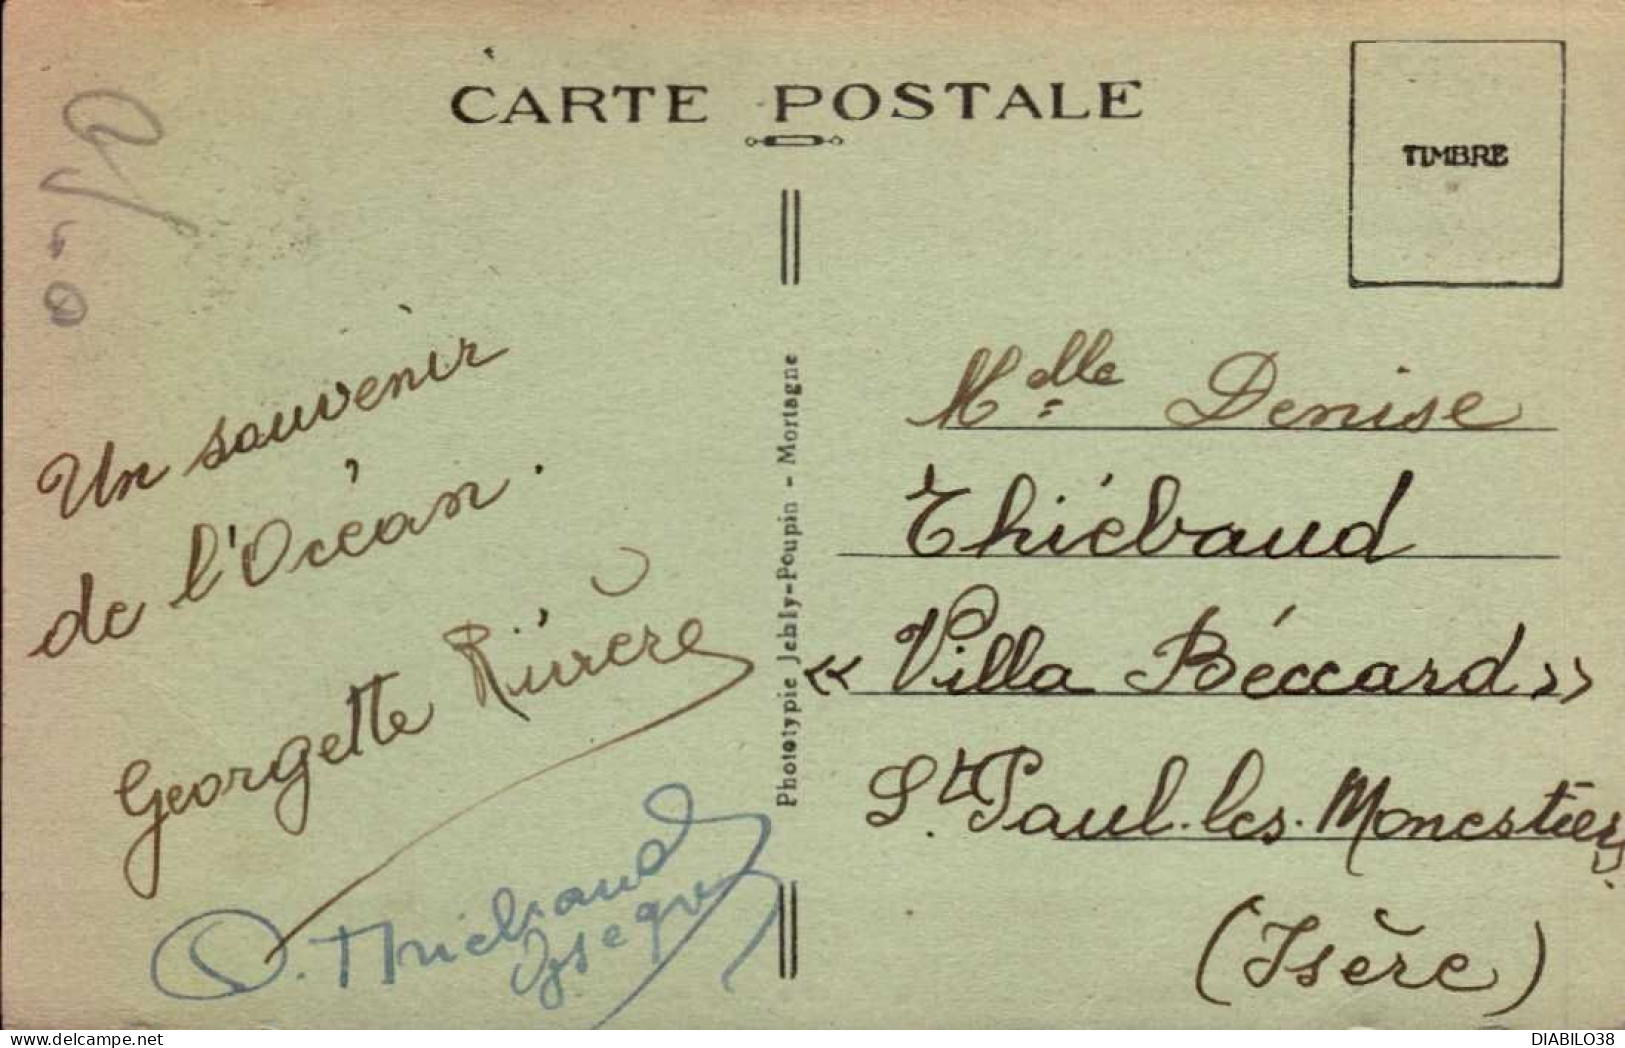 CARTE POSTALE
TIMBRE
Un souvenir
de l'Océan.
Georgette Rivière
D. Thiebaud
Phototypie Jehly-Poupin - Mortagne
Melle Denise
Thiébaud
« Villa Béccard »
St Paul.les.Monestiers.
(Isère)
DIABILO38